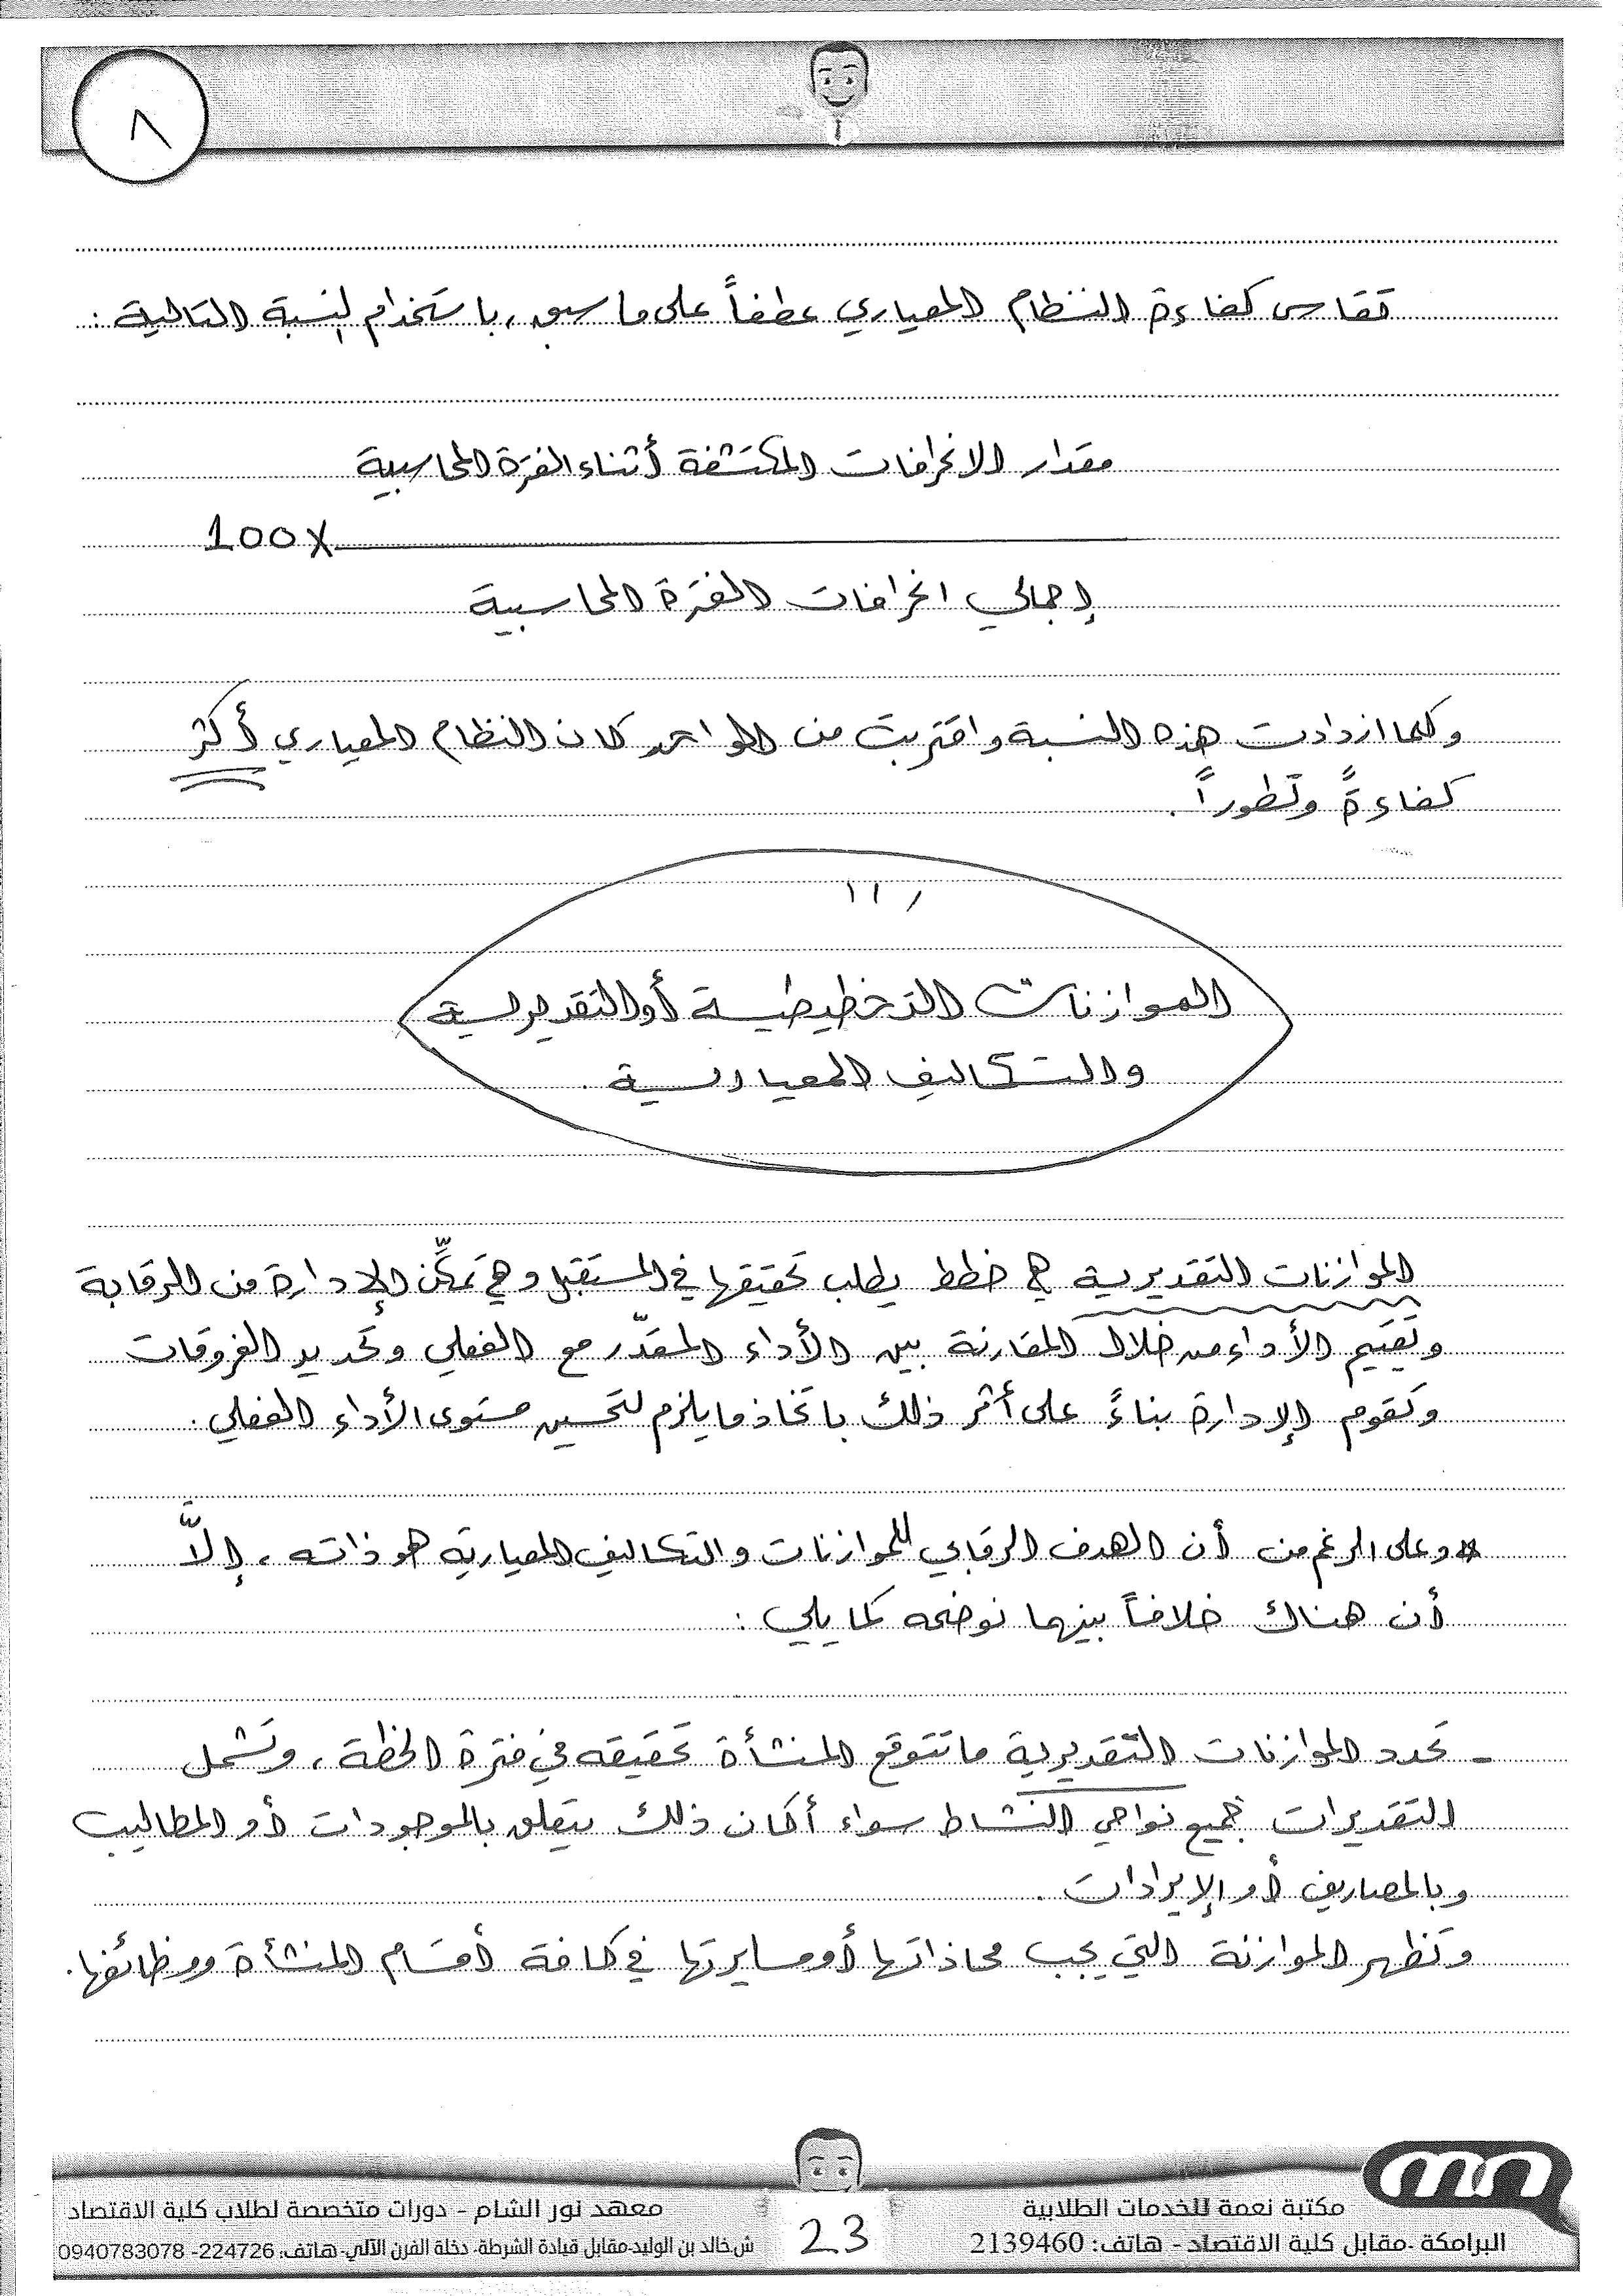 ٨
تقاس كفاءة النظام المعياري عطفاً على ما سبق، باستخدام النسبة التالية:
مقدار الانحرافات المكتشفة أثناء الفترة المحاسبية
100X
إجمالي انحرافات الفترة المحاسبية
وكلما ازدادت هذه النسبة واقتربت من الواحد كان النظام المعياري أكثر
كفاءةً وتطوراً.
الموازنات التخطيطية أو التقديرية
والتكاليف المعيارية.
الموازنات التقديرية هي خطط يطلب تحقيقها في المستقبل وهي تمكِّن الإدارة من الرقابة
وتقييم الأداء من خلال المقارنة بين الأداء المقدّر مع الفعلي وتحديد الفروقات
وتقوم الإدارة بناءً على أثر ذلك باتخاذ ما يلزم لتحسين مستوى الأداء الفعلي.
* وعلى الرغم من أن الهدف الرقابي للموازنات والتكاليف المعيارية هو ذاته، إلاَّ
أن هناك خلافاً بينهما نوضحه كما يلي:
- تحدد الموازنات التقديرية ما تتوقع المنشأة تحقيقه في فترة الخطة، وتشمل
التقديرات جميع نواحي النشاط سواء أكان ذلك يتعلق بالموجودات أو المطاليب
وبالمصاريف أو الإيرادات.
وتظهر الموازنة التي يجب محاذاتها أو مسايرتها في كافة أقسام المنشأة ووظائفها.
مكتبة نعمة للخدمات الطلابية
البرامكة -مقابل كلية الاقتصاد - هاتف: 2139460
23
معهد نور الشام - دورات متخصصة لطلاب كلية الاقتصاد
ش خالد بن الوليد-مقابل قيادة الشرطة- دخلة الفرن الآلي-هاتف: 224726- 0940783078